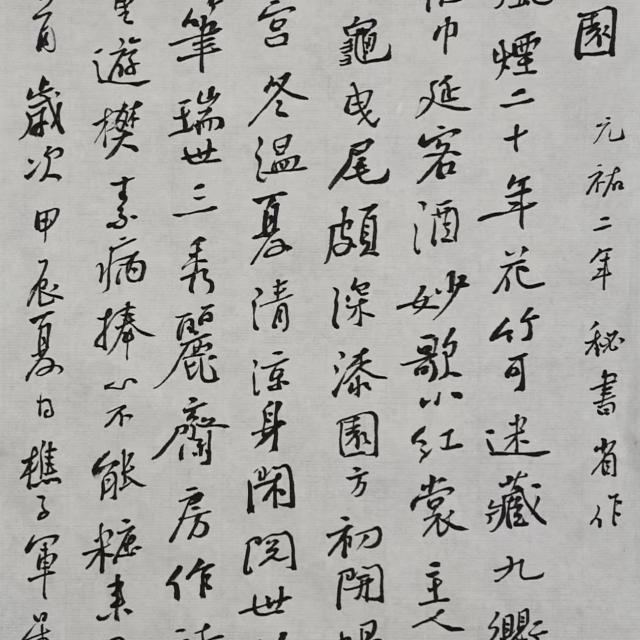 園 元祐二年秘書省作
煙二十年花竹可迷藏九
巾延客酒妙歌小紅裳主人
龜曳尾頗深漆園方初開
宮冬溫夏清涼身閑閱世
筆瑞世三秀麗齋房作
遊樊素病捧心不能糚素
歲次甲辰夏日樵子軍